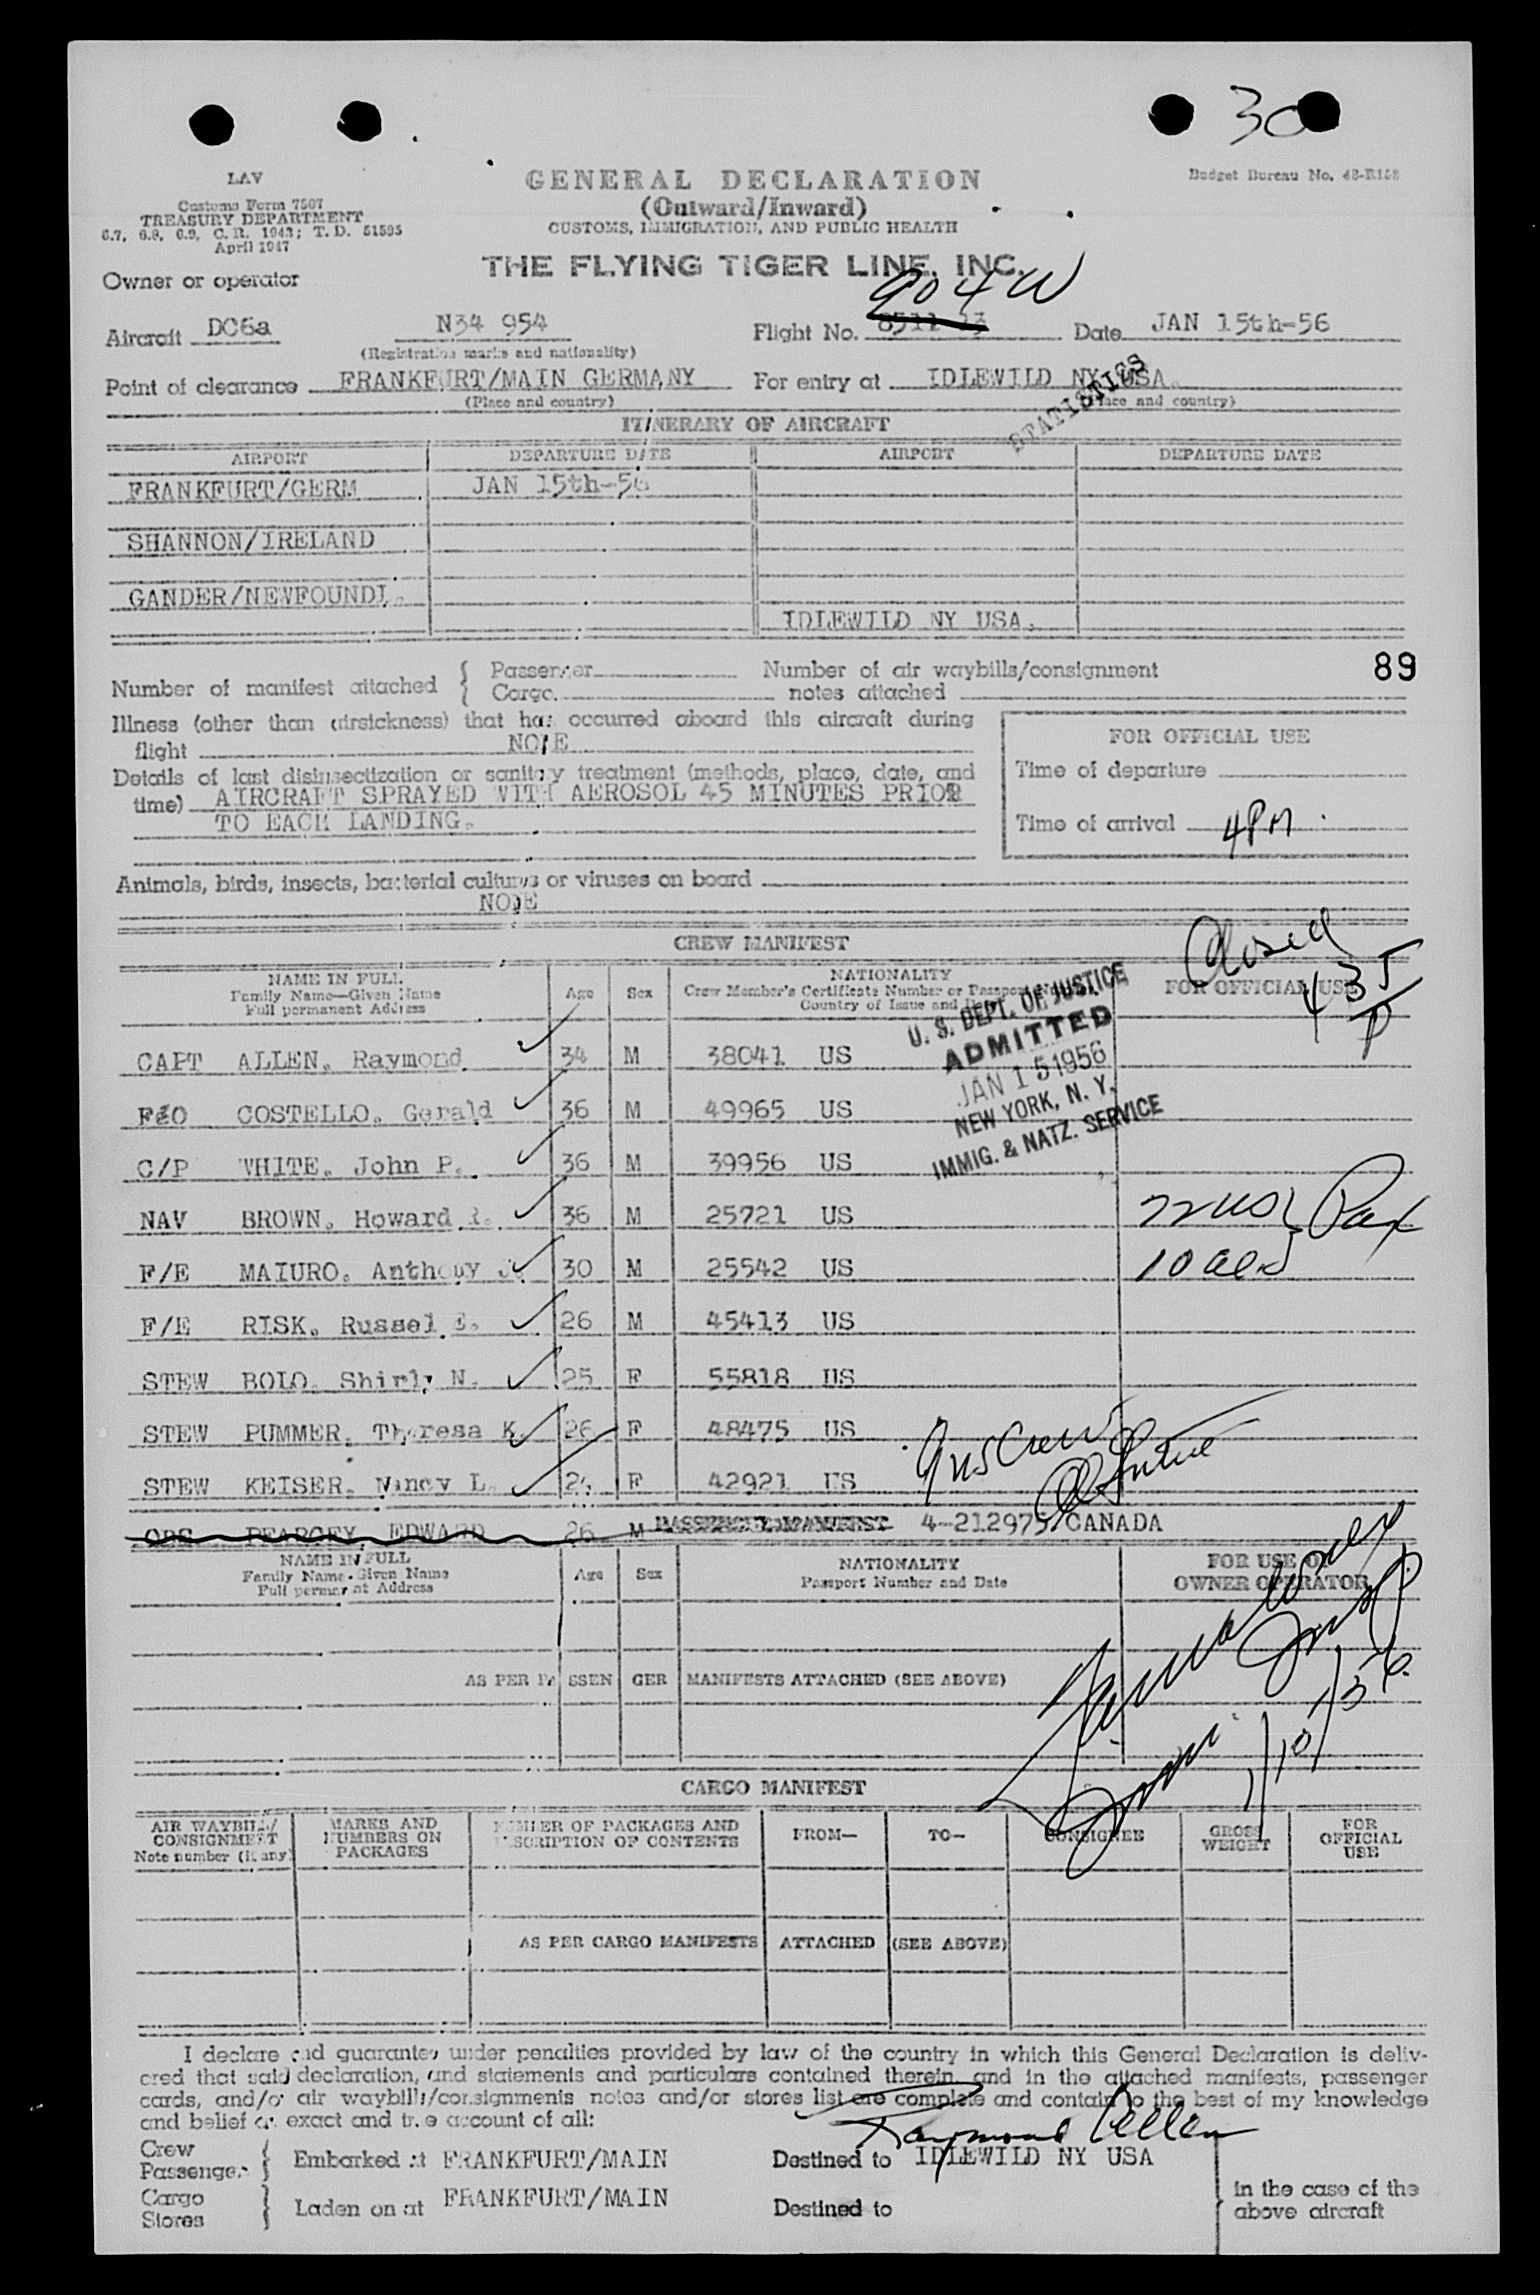 30
LAV
Customs Form 7507
TREASURY DEPARTMENT
6.7, 6.8, 6.9, C. R. 1943; T. D. 51595
April 1947
GENERAL DECLARATION
(Outward/Inward)
CUSTOMS, IMMIGRATION, AND PUBLIC HEALTH
Budget Bureau No. 48-R158
Owner or operator
THE FLYING TIGER LINE, INC.
904W
Aircraft DC6a N34 954 Flight No. Date JAN 15th-56
(Registration marks and nationality)
Point of clearance FRANKFURT/MAIN GERMANY For entry at IDLEWILD NY USA.
(Place and country) (Place and country)
STATISTICS
ITINERARY OF AIRCRAFT
AIRPORT DEPARTURE DATE AIRPORT DEPARTURE DATE
FRANKFURT/GERM JAN 15th-56
SHANNON/IRELAND
GANDER/NEWFOUNDL.
IDLEWILD NY USA.
Number of manifest attached { Passenger Number of air waybills/consignment 89
Cargo notes attached
Illness (other than airsickness) that has occurred aboard this aircraft during
flight NONE
Details of last disinsectization or sanitary treatment (methods, place, date, and
time) AIRCRAFT SPRAYED WITH AEROSOL 45 MINUTES PRIOR
TO EACH LANDING.
FOR OFFICIAL USE
Time of departure
Time of arrival 4PM
Animals, birds, insects, bacterial cultures or viruses on board
NONE
CREW MANIFEST
Closed
435
P
NAME IN FULL
Family Name—Given Name
Full permanent Address
Age Sex
NATIONALITY
Crew Member's Certificate Number or Passport
Country of Issue and
FOR OFFICIAL USE
U. S. DEPT. OF JUSTICE
ADMITTED
JAN 15 1956
NEW YORK, N. Y.
IMMIG. & NATZ. SERVICE
CAPT ALLEN, Raymond 34 M 38041 US
F/O COSTELLO, Gerald 36 M 49965 US
C/P WHITE, John P. 36 M 39956 US
NAV BROWN, Howard R. 36 M 25721 US
F/E MAIURO, Anthony J. 30 M 25542 US
F/E RISK, Russel E. 26 M 45413 US
STEW BOLO, Shirly N. 25 F 55818 US
STEW PUMMER, Theresa K. 26 F 48475 US
STEW KEISER, Nancy L. 24 F 42921 US
72 US } Pax
10 Al
OBS PEARCEY, EDWARD 26 M PASSENGER MANIFEST 4-212975 CANADA
NAME IN FULL
Family Name-Given Name
Full permanent Address
Age Sex
NATIONALITY
Passport Number and Date
FOR USE OF
OWNER OPERATOR
AS PER PASSENGER MANIFESTS ATTACHED (SEE ABOVE)
CARGO MANIFEST
AIR WAYBILL/
CONSIGNMENT
Note number (if any)
MARKS AND
NUMBERS ON
PACKAGES
NUMBER OF PACKAGES AND
DESCRIPTION OF CONTENTS
FROM—
TO—
CONSIGNEE
GROSS
WEIGHT
FOR
OFFICIAL
USE
AS PER CARGO MANIFESTS ATTACHED (SEE ABOVE)
I declare and guarantee under penalties provided by law of the country in which this General Declaration is deliv-
ered that said declaration, and statements and particulars contained therein, and in the attached manifests, passenger
cards, and/or air waybills/consignments notes and/or stores list are complete and contain to the best of my knowledge
and belief an exact and true account of all:
Raymond Allen
Crew
Passenger } Embarked at FRANKFURT/MAIN Destined to IDLEWILD NY USA
Cargo
Stores } Laden on at FRANKFURT/MAIN Destined to
in the case of the
above aircraft